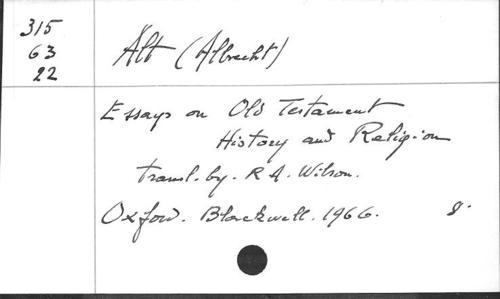 315
63
22
Alt (Albrecht)
Essays on Old Testament
History and Religion
transl. by. R A. Wilson.
Oxford. Blackwell. 1966. 8.